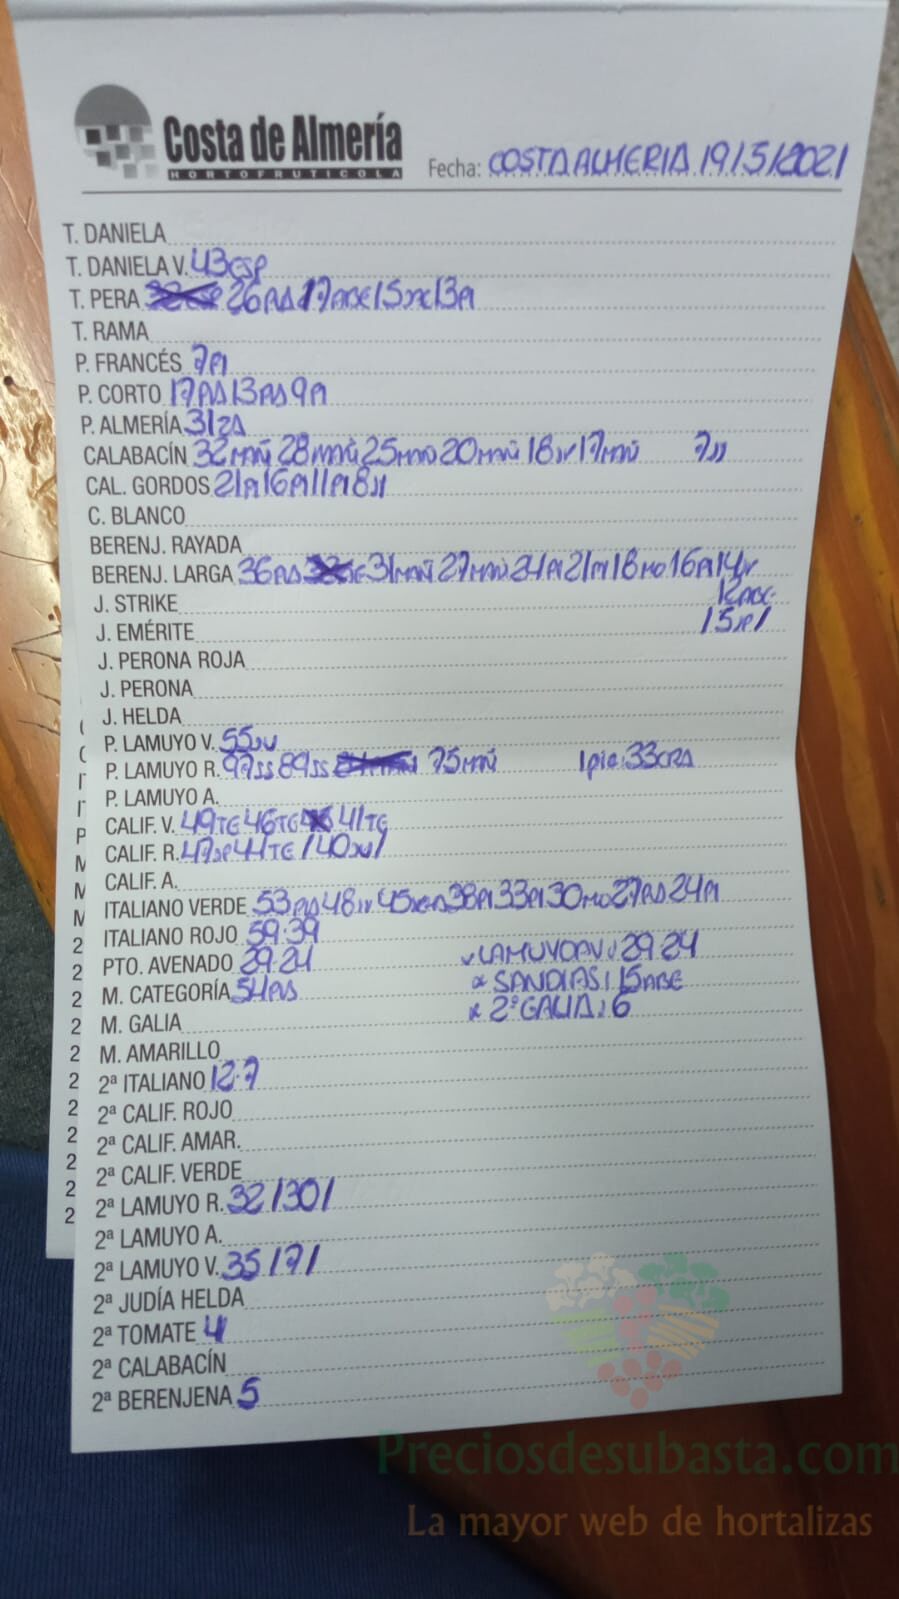 Costa de Almería
HORTOFRUTICOLA
Fecha: COSTA ALMERIA 19/5/2021
T. DANIELA
T. DANIELA V. 43 ESP
T. PERA 26 PAD 17 ABE 15 13 PI
T. RAMA
P. FRANCÉS 7 PI
P. CORTO 17 PAD 13 PAD 9 PI
P. ALMERÍA 31 ZA
CALABACÍN 32 MAÑ 28 MAÑ 25 MAÑ 20 MAÑ 18 17 MAÑ 7 JJ
CAL. GORDOS 21 PI 16 PI 11 PI 8 JJ
C. BLANCO
BERENJ. RAYADA
BERENJ. LARGA 36 PAD 31 MAÑ 27 MAÑ 24 PI 21 PI 18 MO 16 PI 14
12 ABE
J. STRIKE
J. EMÉRITE 15 /
J. PERONA ROJA
J. PERONA
J. HELDA
P. LAMUYO V. 55
P. LAMUYO R. 97 SS 89 SS 75 MAÑ 1 pic: 33 CRA
P. LAMUYO A.
CALIF. V. 49 TE 46 TE 41 TE
CALIF. R. 47 44 TE / 40 /
CALIF. A.
ITALIANO VERDE 53 PAD 48 45 38 PI 33 PI 30 MO 27 PAD 24 PI
ITALIANO ROJO 59·39
PTO. AVENADO 29·24 LAMUYO AV: 29·24
M. CATEGORÍA 54 PAD SANDIAS: 15 ABE
M. GALIA 2ª GALIA: 6
M. AMARILLO
2ª ITALIANO 12·7
2ª CALIF. ROJO
2ª CALIF. AMAR.
2ª CALIF. VERDE
2ª LAMUYO R. 32 / 30 /
2ª LAMUYO A.
2ª LAMUYO V. 35 / 7 /
2ª JUDÍA HELDA
2ª TOMATE 4
2ª CALABACÍN
2ª BERENJENA 5
Preciosdesubasta.com
La mayor web de hortalizas